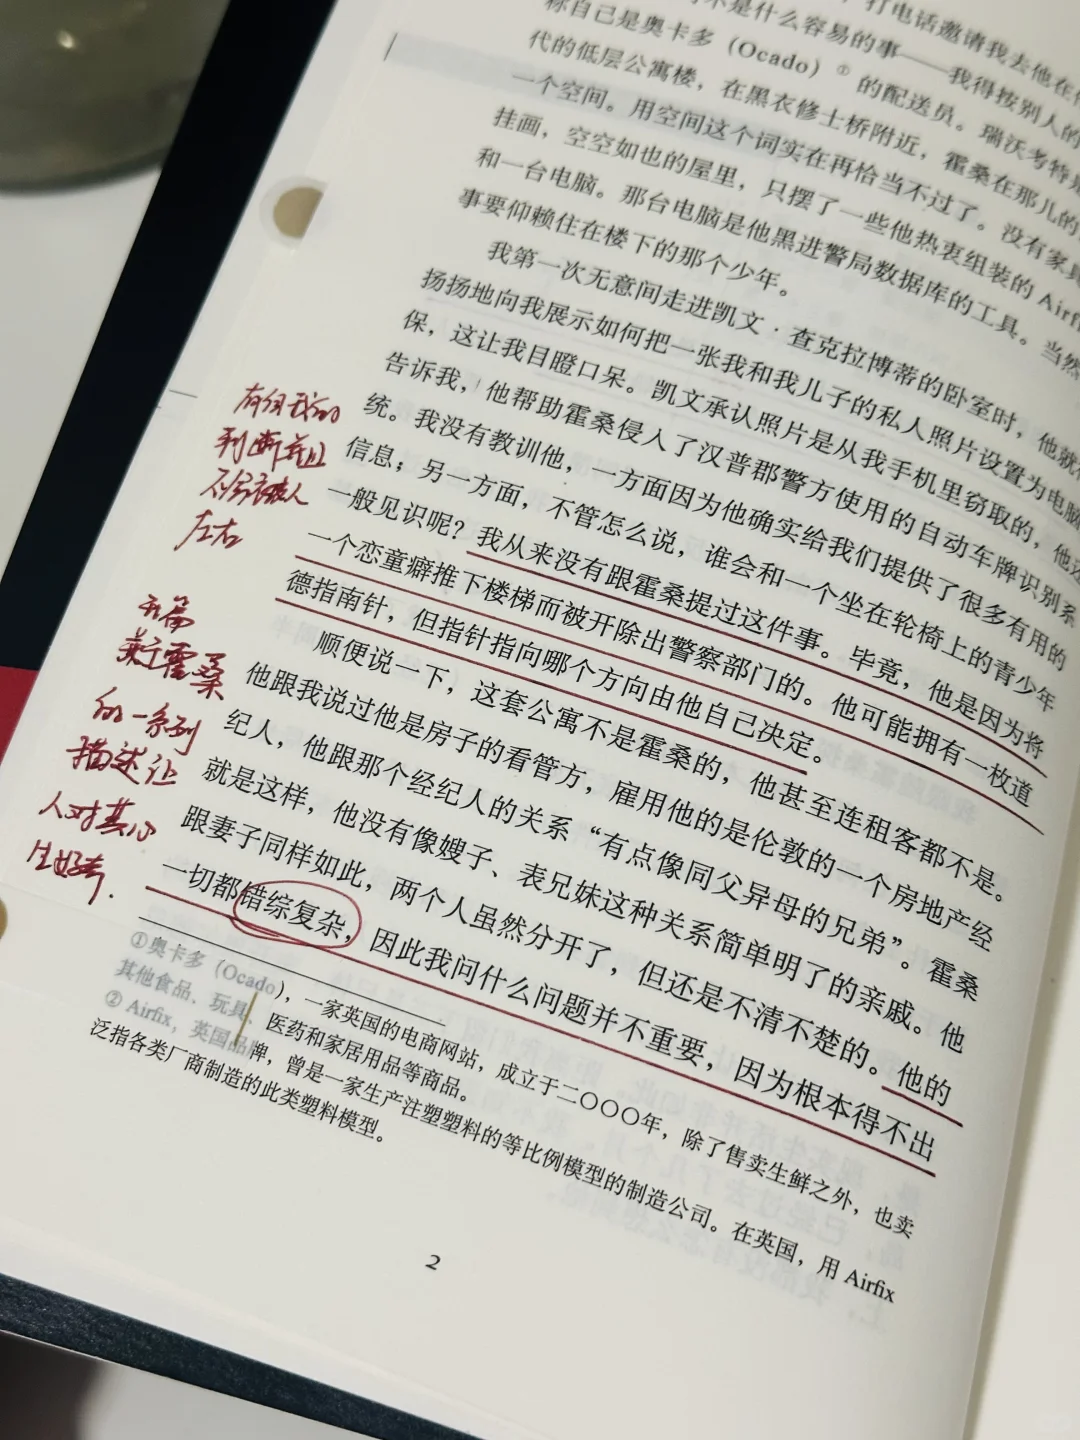 ，打电话邀请我去他在
不是什么容易的事——我得按别人的
称自己是奥卡多（Ocado）①的配送员。瑞沃考特是
代的低层公寓楼，在黑衣修士桥附近，霍桑在那儿的
一个空间。用空间这个词实在再恰当不过了。没有家具
挂画，空空如也的屋里，只摆了一些他热衷组装的 Airfix
和一台电脑。那台电脑是他黑进警局数据库的工具。当然
事要仰赖住在楼下的那个少年。
我第一次无意间走进凯文·查克拉博蒂的卧室时，他就
扬扬地向我展示如何把一张我和我儿子的私人照片设置为电脑
保，这让我目瞪口呆。凯文承认照片是从我手机里窃取的，他还
告诉我，他帮助霍桑侵入了汉普郡警方使用的自动车牌识别系
统。我没有教训他，一方面因为他确实给我们提供了很多有用的
信息；另一方面，不管怎么说，谁会和一个坐在轮椅上的青少年
一般见识呢？我从来没有跟霍桑提过这件事。毕竟，他是因为将
一个恋童癖推下楼梯而被开除出警察部门的。他可能拥有一枚道
德指南针，但指针指向哪个方向由他自己决定。
顺便说一下，这套公寓不是霍桑的，他甚至连租客都不是。
他跟我说过他是房子的看管方，雇用他的是伦敦的一个房地产经
纪人，他跟那个经纪人的关系“有点像同父异母的兄弟”。霍桑
就是这样，他没有像嫂子、表兄妹这种关系简单明了的亲戚。他
跟妻子同样如此，两个人虽然分开了，但还是不清不楚的。他的
一切都错综复杂，因此我问什么问题并不重要，因为根本得不出
①奥卡多（Ocado），一家英国的电商网站，成立于二〇〇〇年，除了售卖生鲜之外，也卖
其他食品、玩具、医药和家居用品等商品。
② Airfix，英国品牌，曾是一家生产注塑塑料的等比例模型的制造公司。在英国，用 Airfix
泛指各类厂商制造的此类塑料模型。
2
有自我的
判断并且
不会被人
左右
开篇
关于霍桑
的一系列
描述让
人对其心
生好奇.